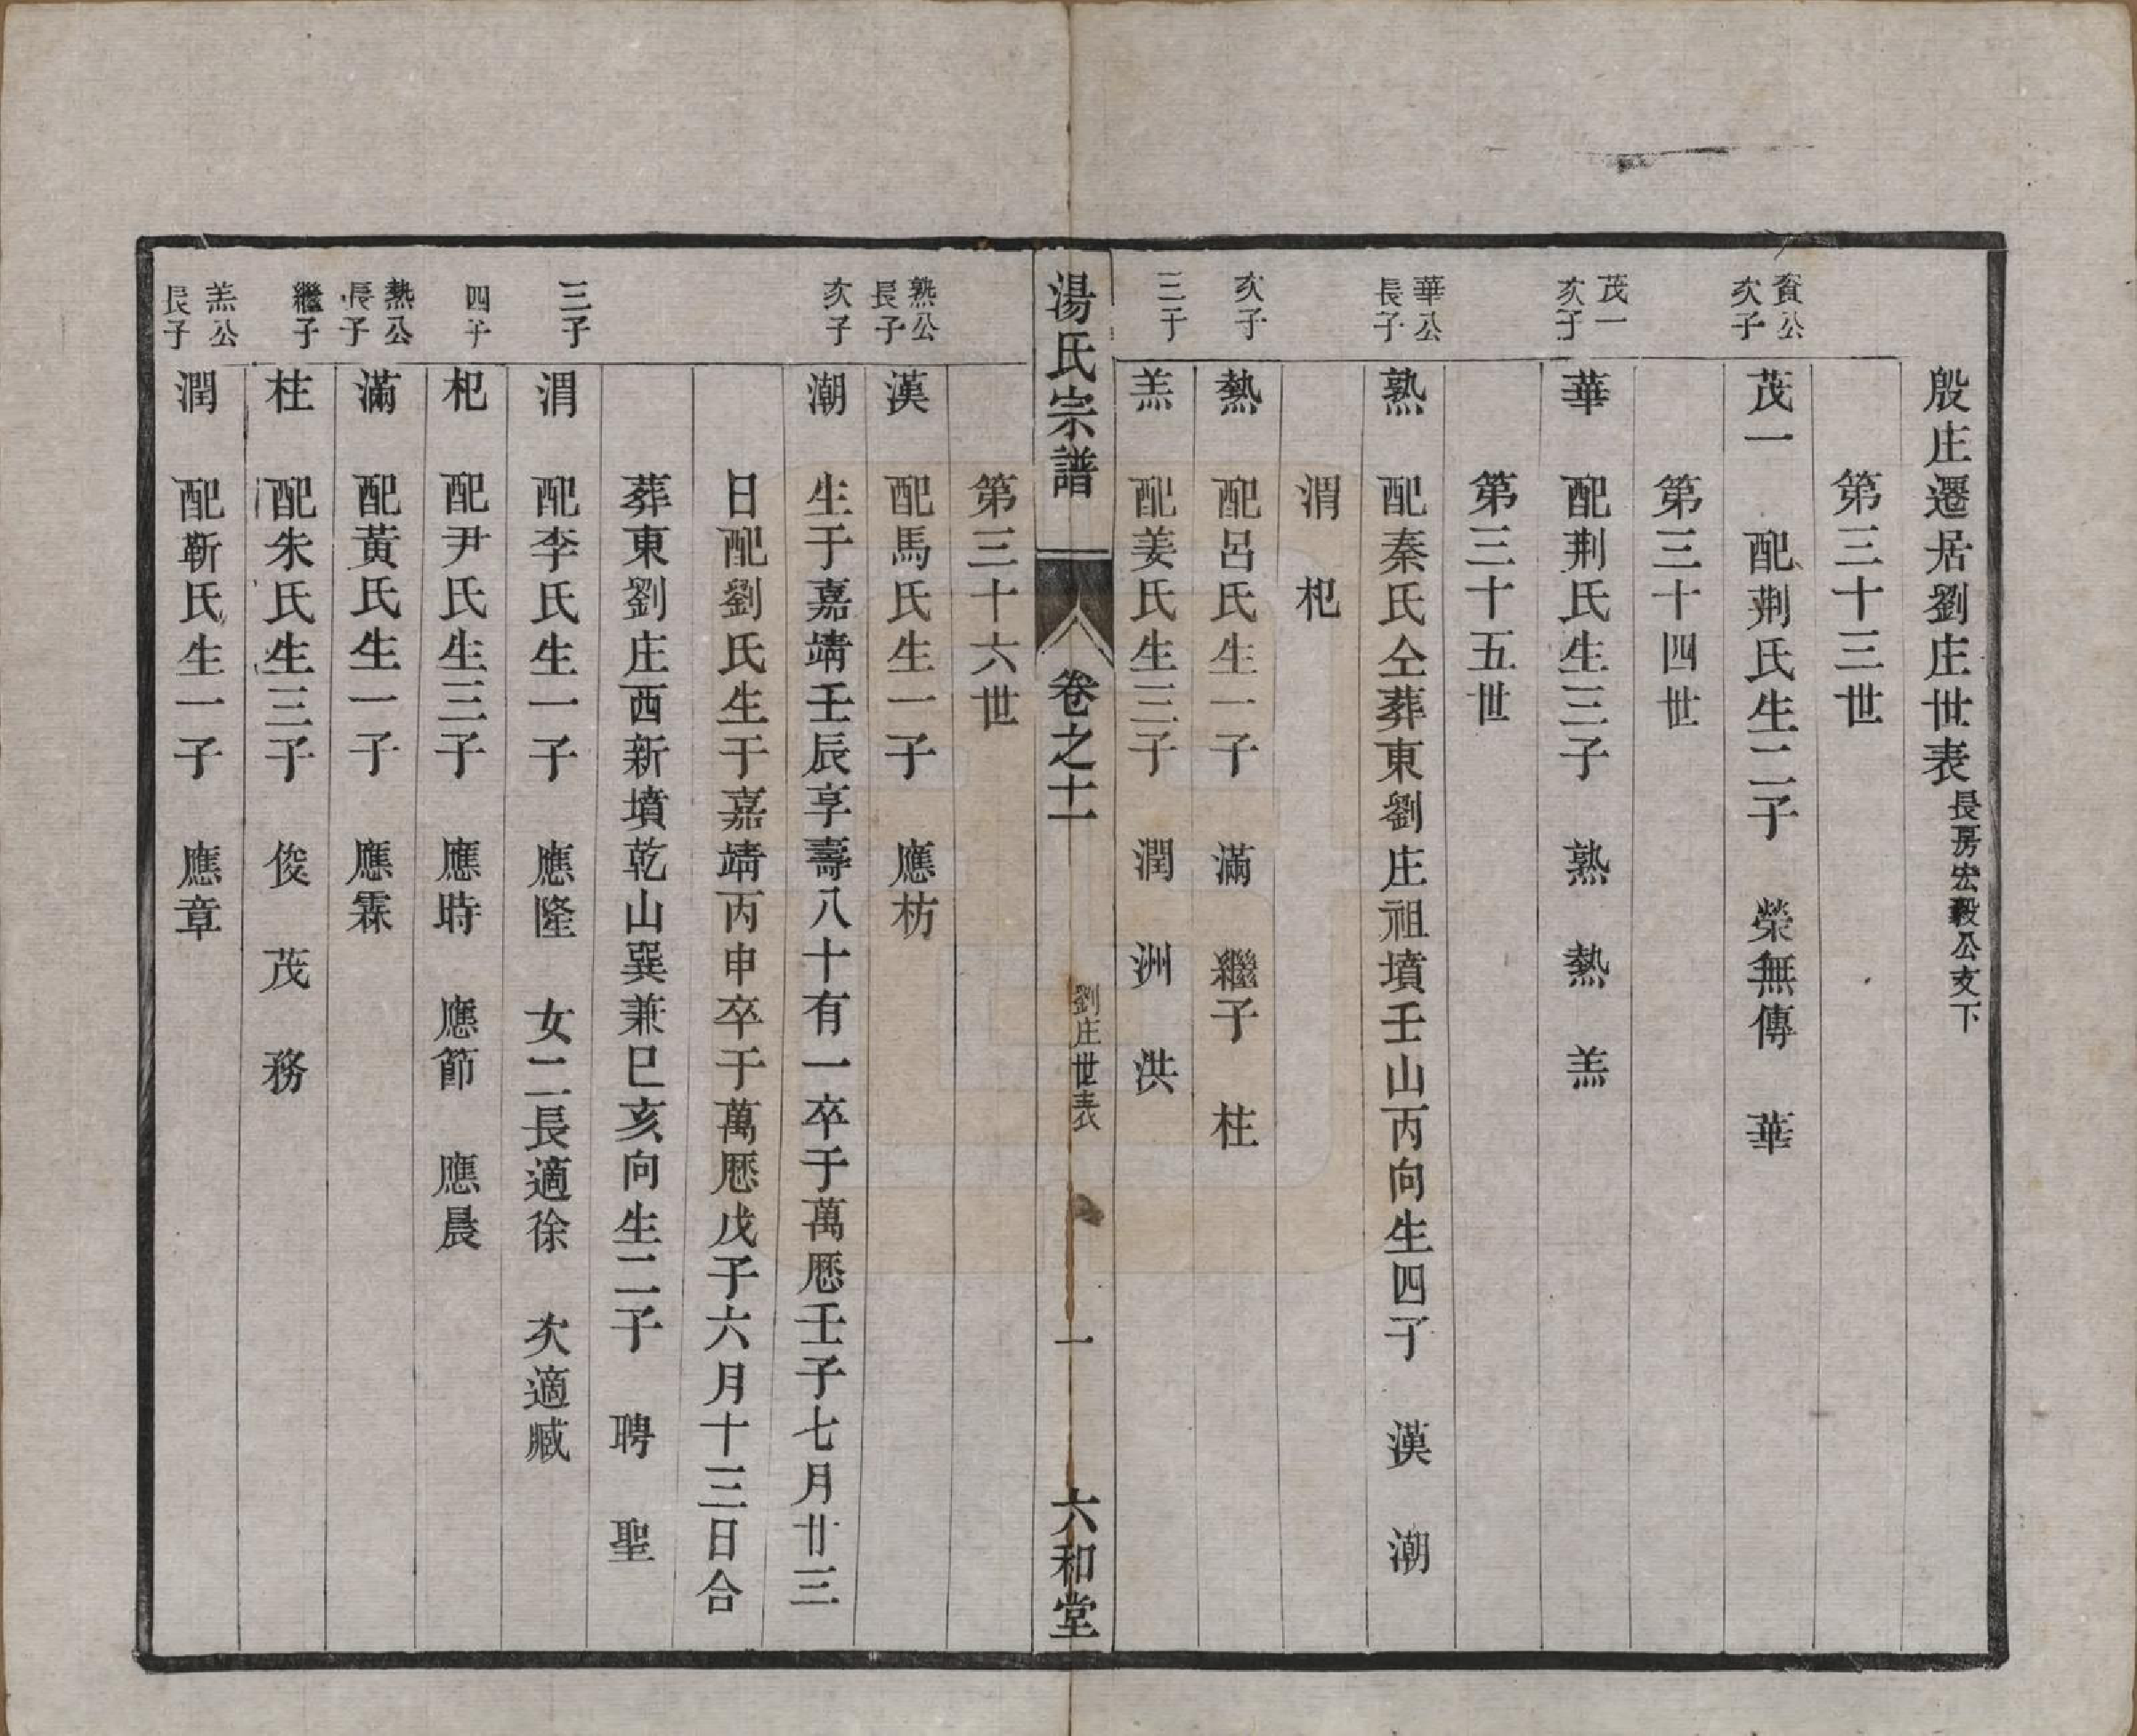 殷庄遷居劉庄世表長房宏毅公支下
第三十三世
賓公次子
茂一 配荆氏生二子 榮無傳 華
第三十四世
茂一次子
華 配荆氏生三子 熟 熱 羔
第三十五世
華公長子
熟 配秦氏仝葬東劉庄祖墳壬山丙向生四子 漢 潮
渭 杞
次子
熱 配呂氏生一子 滿 繼子 柱
三子
羔 配姜氏生三子 潤 洲 洪
湯氏宗譜 卷之十一 劉庄世表 一 六和堂
第三十六世
熟公長子
漢 配馬氏生一子 應枋
次子
潮 生于嘉靖壬辰享壽八十有一卒于萬厯壬子七月廿三
日配劉氏生于嘉靖丙申卒于萬厯戊子六月十三日合
葬東劉庄西新墳乾山巽兼巳亥向生二子 聘 聖
三子
渭 配李氏生一子 應隆 女二長適徐 次適臧
四子
杞 配尹氏生三子 應時 應節 應晨
熱公長子
滿 配黃氏生一子 應霖
繼子
柱 配朱氏生三子 俊 茂 務
羔公長子
潤 配靳氏生一子 應章